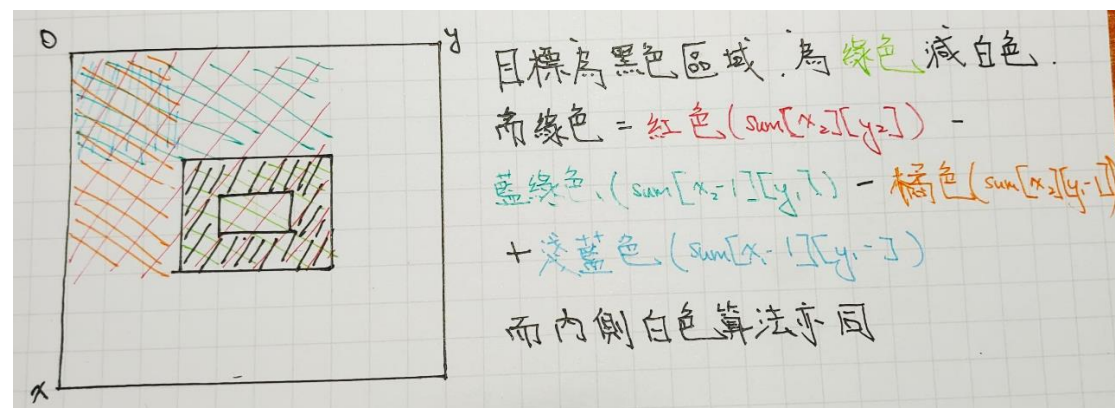 0
y
x
目標為黑色區域.為綠色減白色.
而綠色=紅色(sum[x₂][y₂]) -
藍綠色(sum[x₂-1][y₁]) - 橘色(sum[x₂][y₁-1])
+淺藍色(sum[x₁-1][y₁-])
而內側白色算法亦同